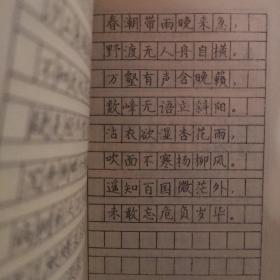 春潮带雨晚来急,
野渡无人舟自横。
万壑有声含晚籁,
数峰无语立斜阳。
沾衣欲湿杏花雨,
吹面不寒杨柳风。
遥知百国微茫外,
未敢忘危负岁华。